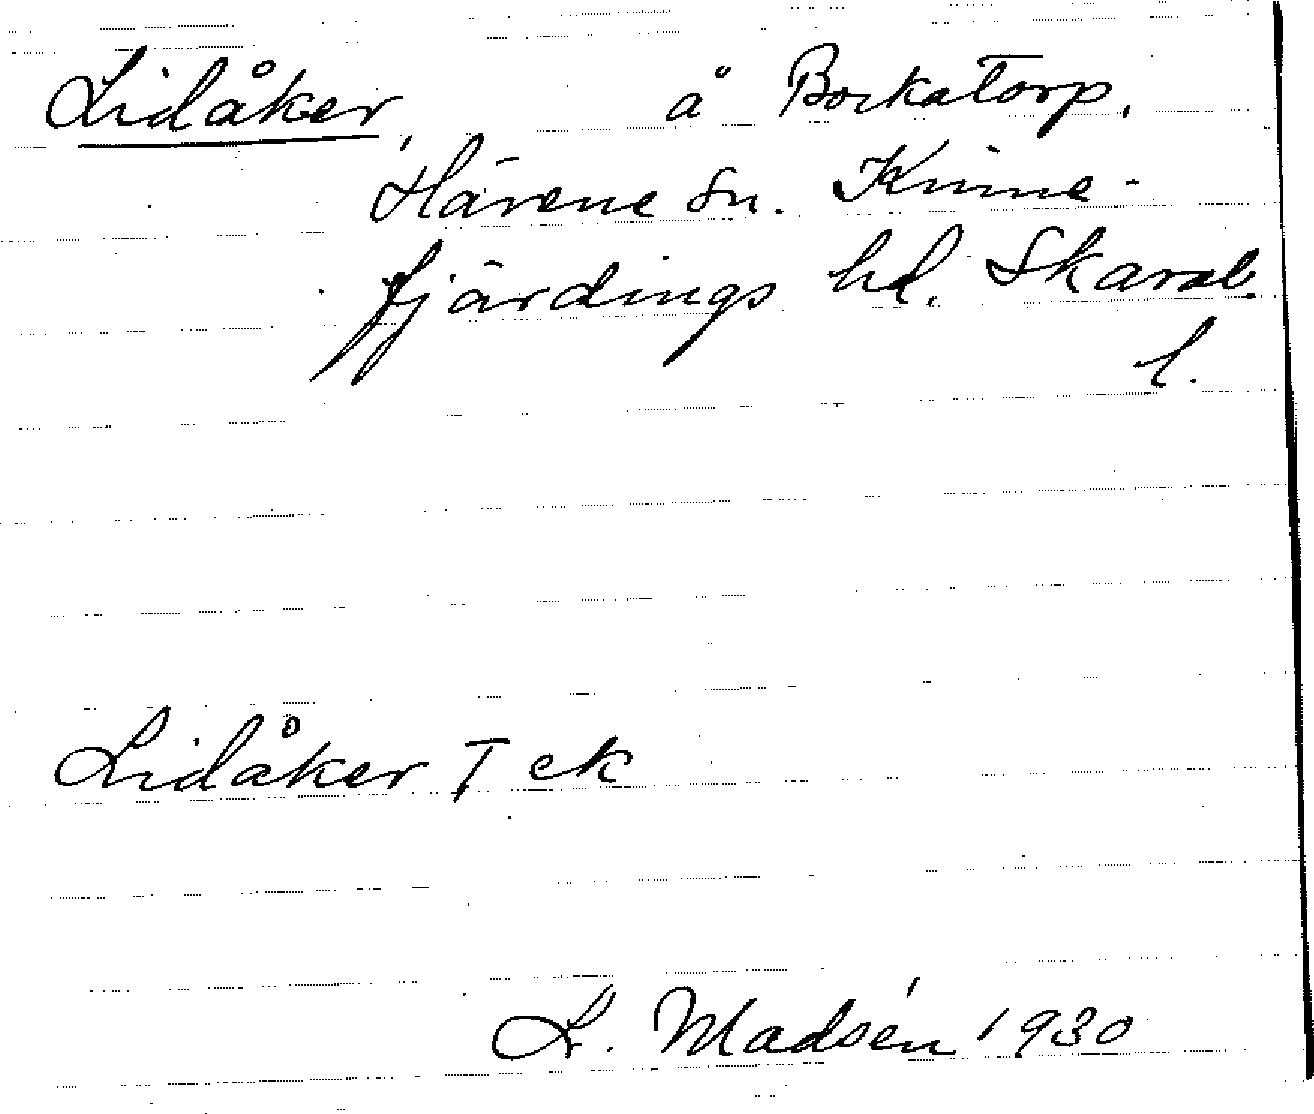 Lidåker, å Bockatorp,
Härene Sn. Kinne-
fjärdings hd. Skarab.
l.
Lidåker T ek
L. Madsén 1930